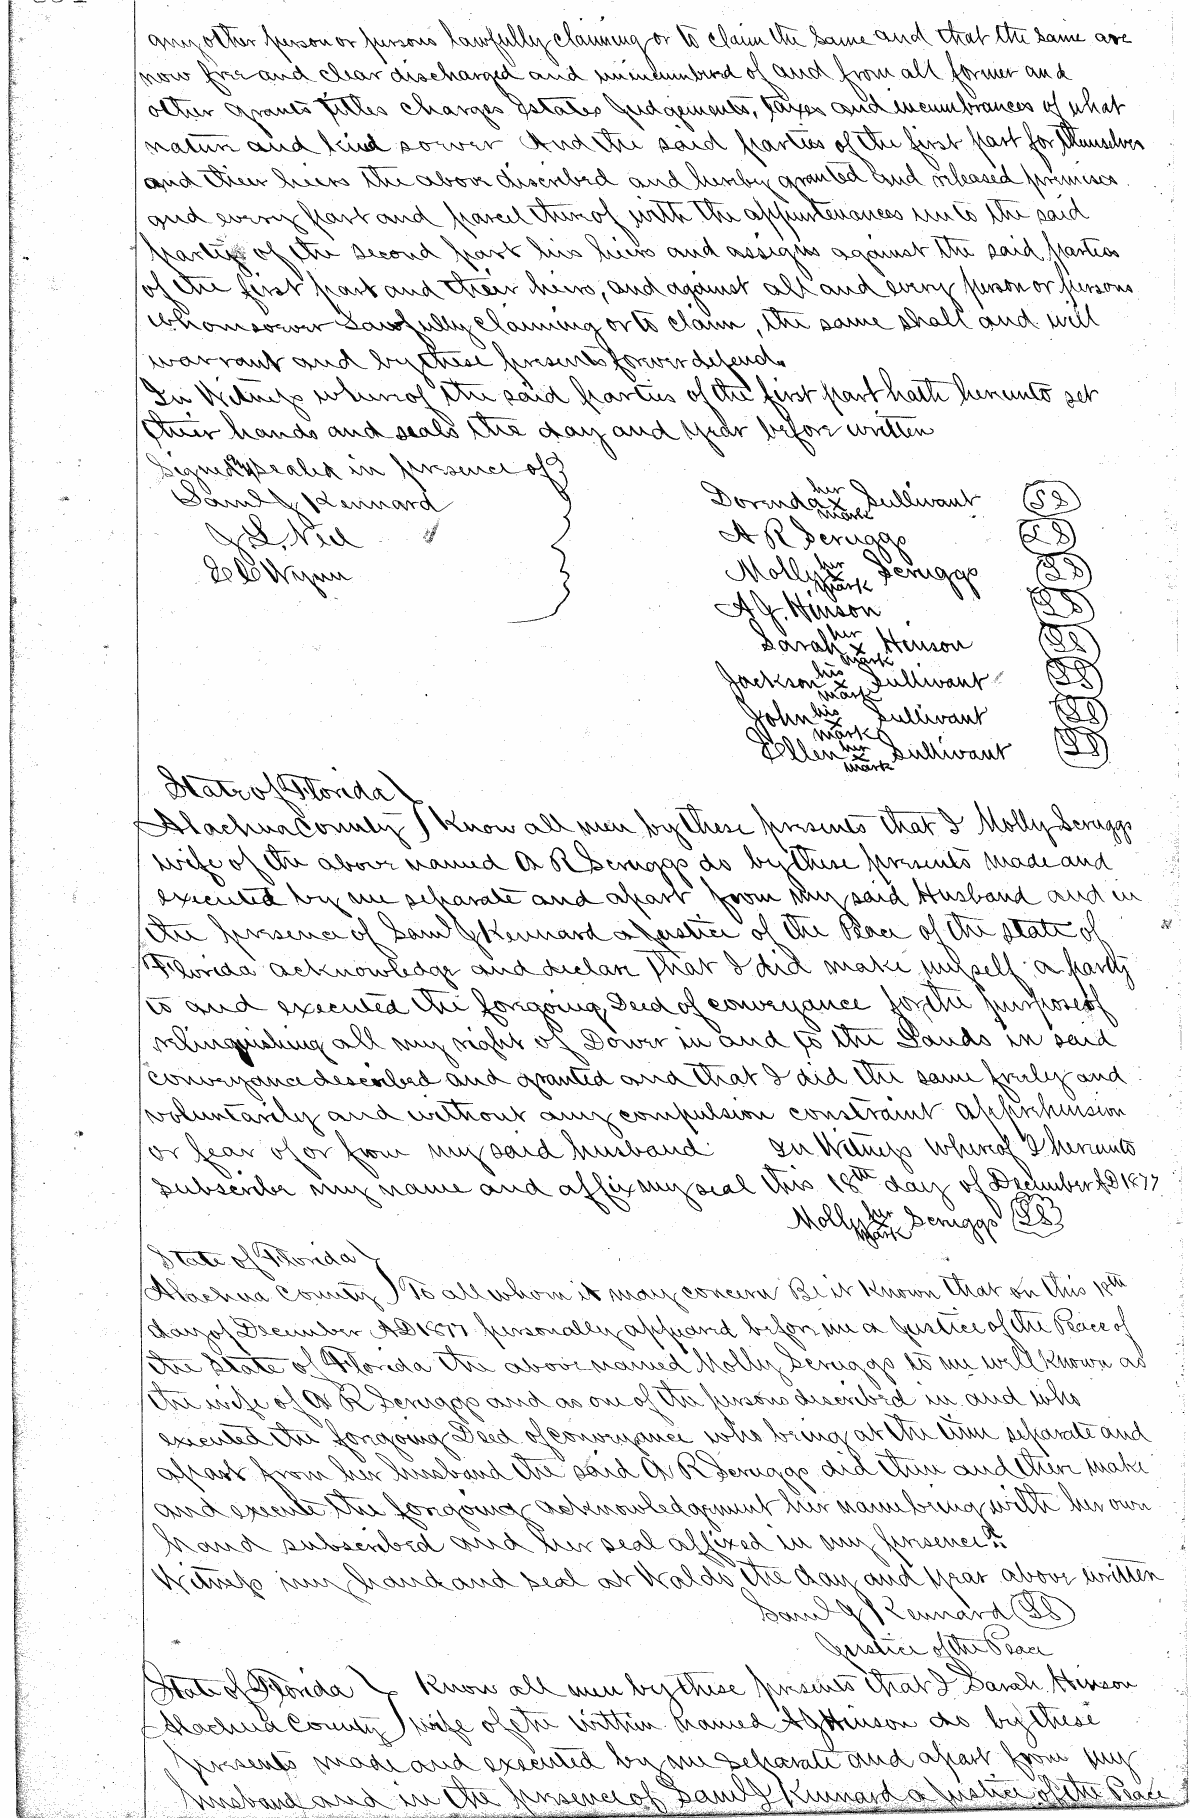 any other person or persons lawfully claiming or to claim the same and that the same are
now free and clear discharged and unincumbred of and from all former and
other grants titles charges Estates Judgements, taxes and incumbrances of what
nature and kind soever And the said parties of the first part for themselves
and their heirs the above discribed and hereby granted and released premises
and every part and parcel thereof with the appurtenances unto the said
party of the second part his heirs and assigns against the said parties
of the first part and their heirs, and against all and every person or persons
whomsoever Lawfully claiming or to claim, the same shall and will
warrant and by these presents forever defend.
In Witness whereof the said parties of the first part hath hereunto set
their hands and seals the day and year before written
Signed & sealed in presence of
Saml J Kennard
J. L.
Wynn
Dorinda her x mark Sullivant LS
A R Scruggs LS
Molly her x mark Scruggs LS
A J. Hinson LS
Sarah her x mark Hinson LS
Jackson his x mark Sullivant LS
John his x mark Sullivant LS
Ellen her x mark Sullivant LS
State of Florida
Alachua County Know all men by these presents that I Molly Scruggs
wife of the above named A R Scruggs do by these presents made and
executed by me separate and apart from my said Husband and in
the presence of Saml J Kennard a Justice of the Peace of the state of
Florida acknowledge and declare that I did make myself a party
to and executed the forgoing Deed of conveyance for the purpose of
relinquishing all my right of Dower in and to the Lands in said
conveyance described and granted and that I did the same freely and
voluntarily and without any compulsion constraint apprehension
or fear of or from my said husband In Witness whereof I hereunto
subscribe my name and affix my seal this 18th day of December AD 1877
Molly her x mark Scruggs LS
State of Florida
Alachua County To all whom it may concern Be it Known that on this 18th
day of December AD 1877 personally appeared before me a Justice of the Peace of
the State of Florida the above named Molly Scruggs to me well known as
the wife of A R Scruggs and as one of the persons discribed in and who
executed the forgoing Deed of conveyance who being at the time separate and
apart from her husband the said A R Scruggs did then and there make
and execute the forgoing acknowledgement her name being with her own
hand subscribed and her seal affixed in my presence.
Witness my hand and seal at Waldo the day and year above written
Saml J Kennard LS
Justice of the Peace
State of Florida Know all men by these presents that I Sarah Hinson
Alachua County wife of the within named A J Hinson do by these
presents made and executed by me separate and apart from my
husband and in the presence of Saml J Kennard a Justice of the Peace